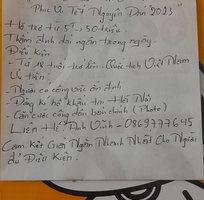 Phục Vụ Tết Nguyên Đán "2023"
- Hỗ trợ từ 5T - 50 triệu
Thẩm định giải ngân trong ngày
Điều kiện
- Từ 18 tuổi trở lên. Quốc tịch Việt Nam
Ưu tiên:
- Người có công việc ổn định
- Đăng kí hộ khẩu tại Hà Nội
- Căn cước công dân bản chính (Photo)
Liên Hệ: Anh Vinh - 0869777645
Cam Kết Giải Ngân Nhanh Nhất Cho Người
đủ Điều Kiện.